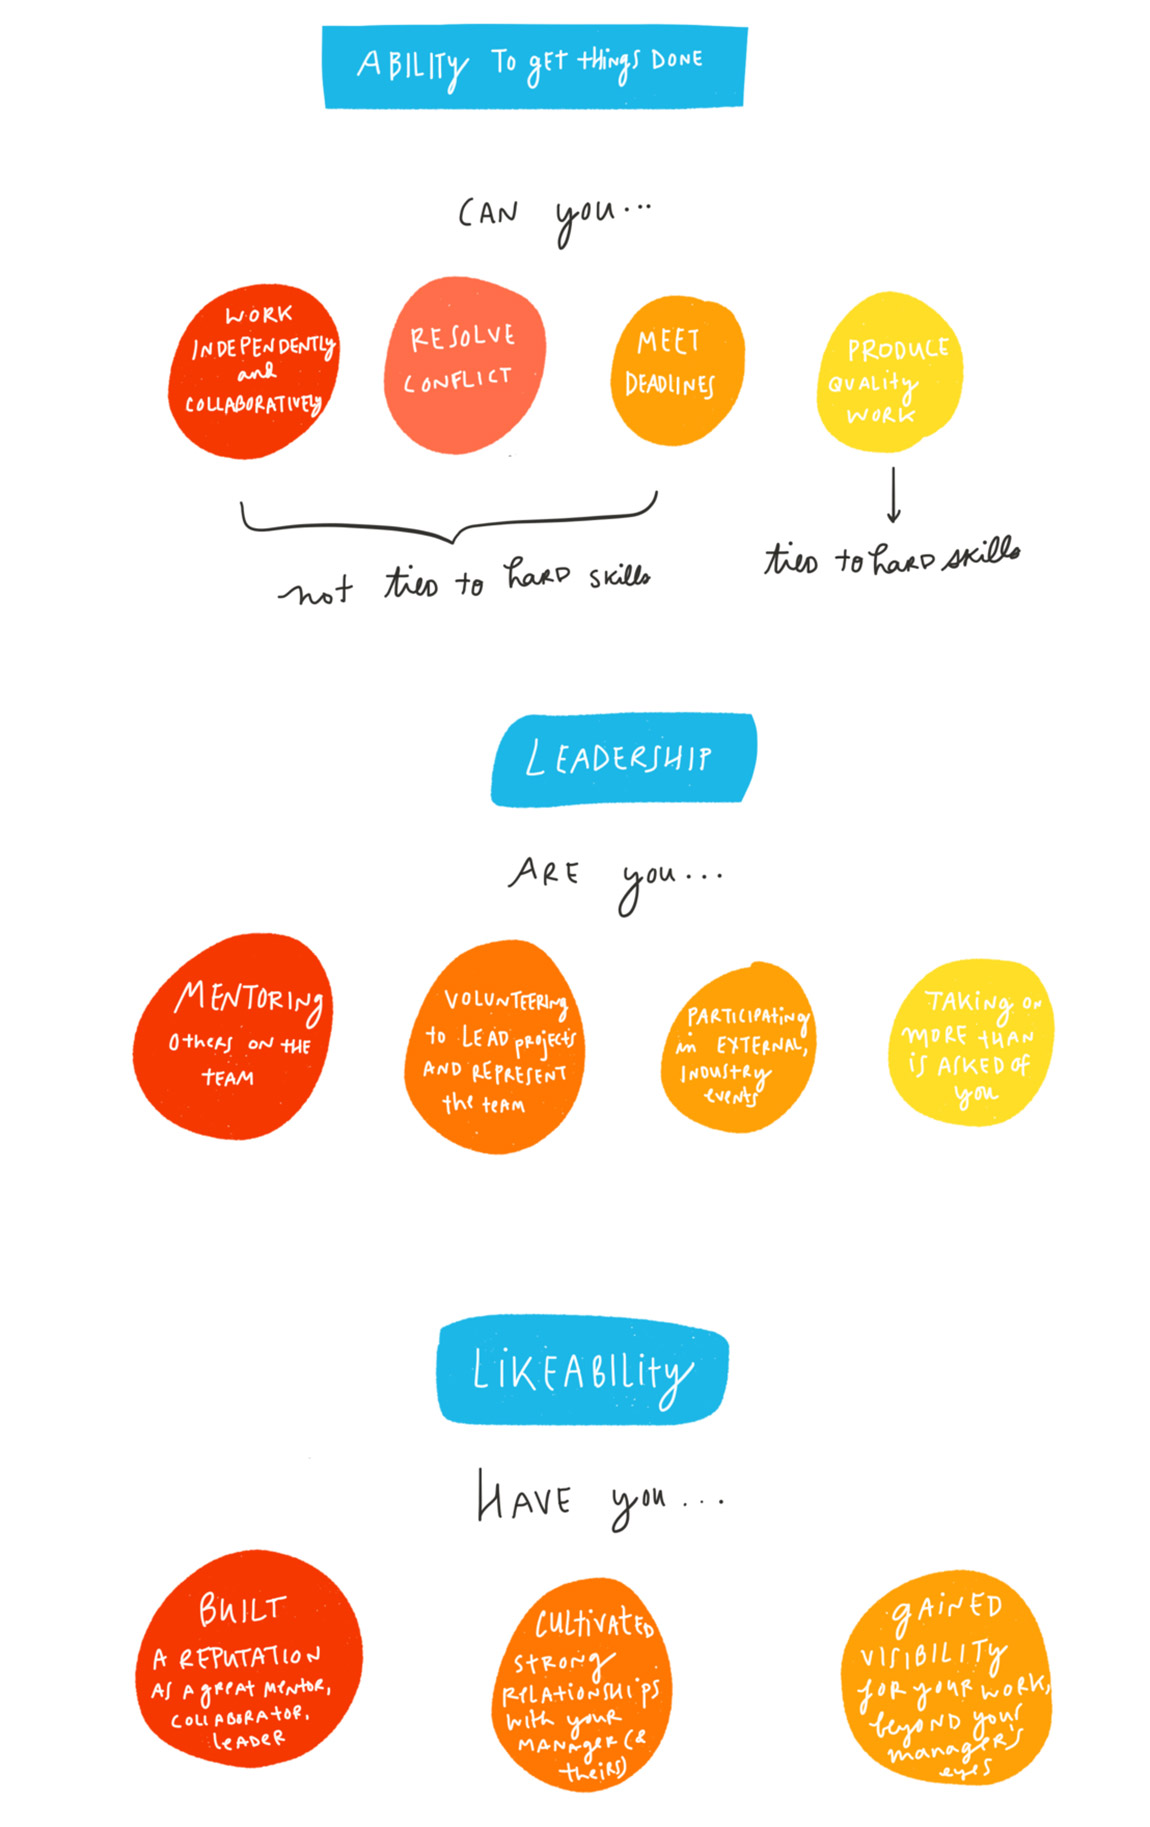 ABILITY TO get things DONE
CAN you...
WORK
INDEPENDENTLY
and
COLLABORATIVELY
RESOLVE
CONFLICT
MEET
DEADLINES
PRODUCE
QUALITY
WORK
not tied to hARD skills
tied to hARD skills
LEADERSHIP
ARE you...
MENTORING
OtHERS ON tHE
tEAM
VOLUNTEERING
to LEAD projects
AND REPRESENT
the teAM
PARTICIPAting
in EXTERNAL,
INDUStRY
events
TAKING ON
MORE tHAN
iS ASKED of
you
LiKEABILity
HAVE you...
BUILT
A REPUTATION
AS A gREAT MENTOR,
COLLABORATOR,
LEADER
CULtIVAtED
StRONg
RELAtiONSHIPS
With your
MANAgER (&
theiRS)
gAiNED
VISIBILITY
foR youR WORK,
beyOND youR
managER'S
eyeS